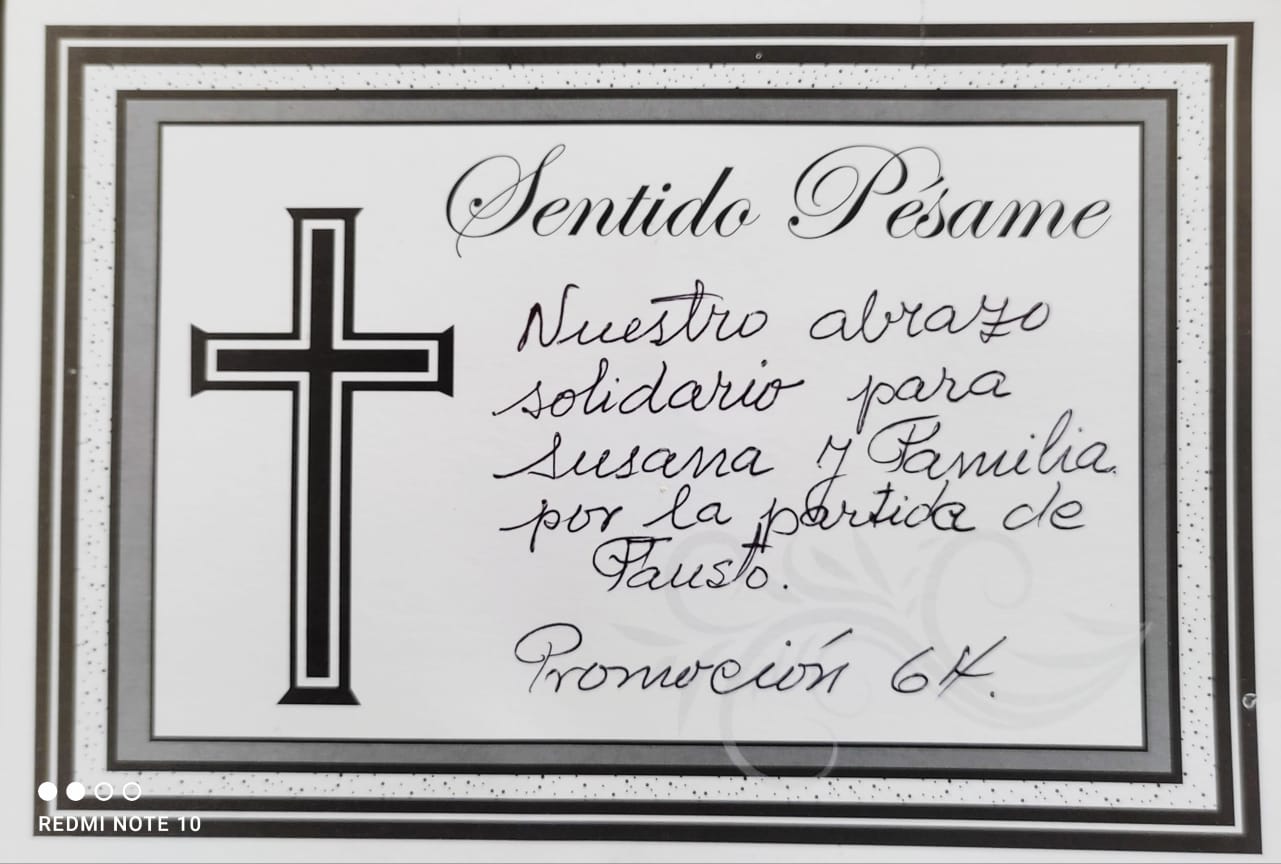 Sentido Pésame
Nuestro abrazo
solidario para
Susana y Familia
por la partida de
Fausto.
Promoción 64.
REDMI NOTE 10